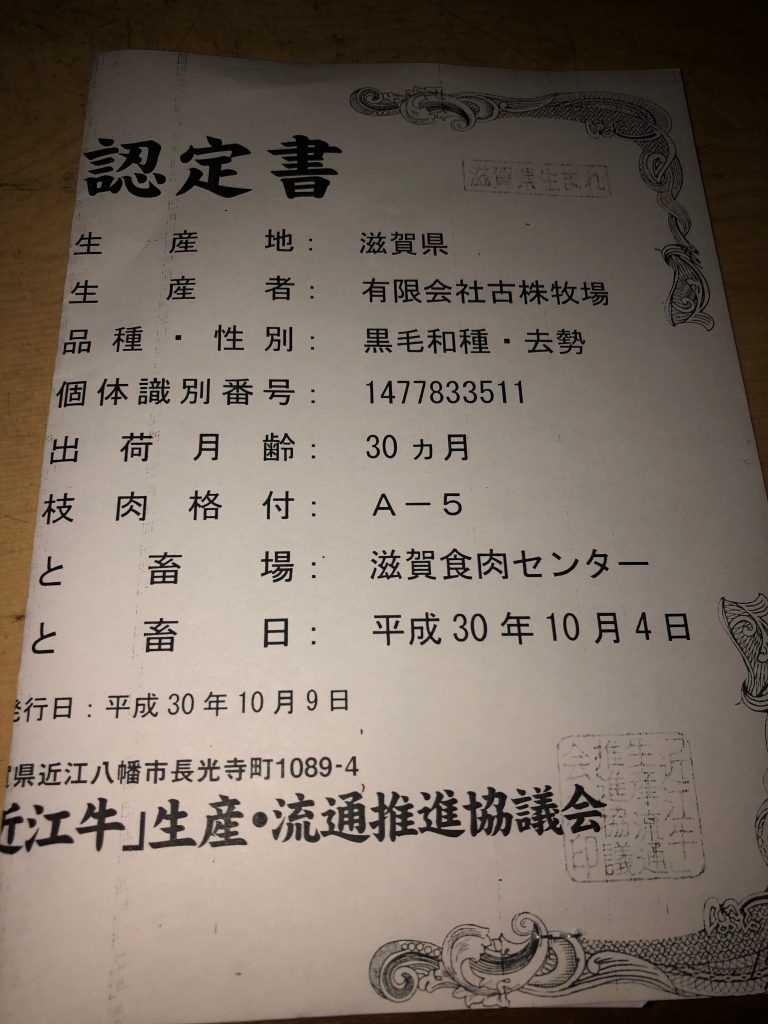 認定書
滋賀県生まれ
生産地： 滋賀県
生産者： 有限会社古株牧場
品種・性別： 黒毛和種・去勢
個体識別番号： 1477833511
出荷月齢： 30ヵ月
枝肉格付： A－5
と畜場： 滋賀食肉センター
と畜日： 平成30年10月4日
発行日：平成30年10月9日
賀県近江八幡市長光寺町1089-4
近江牛」生産・流通推進協議会
近江牛生産流通推進協議会印